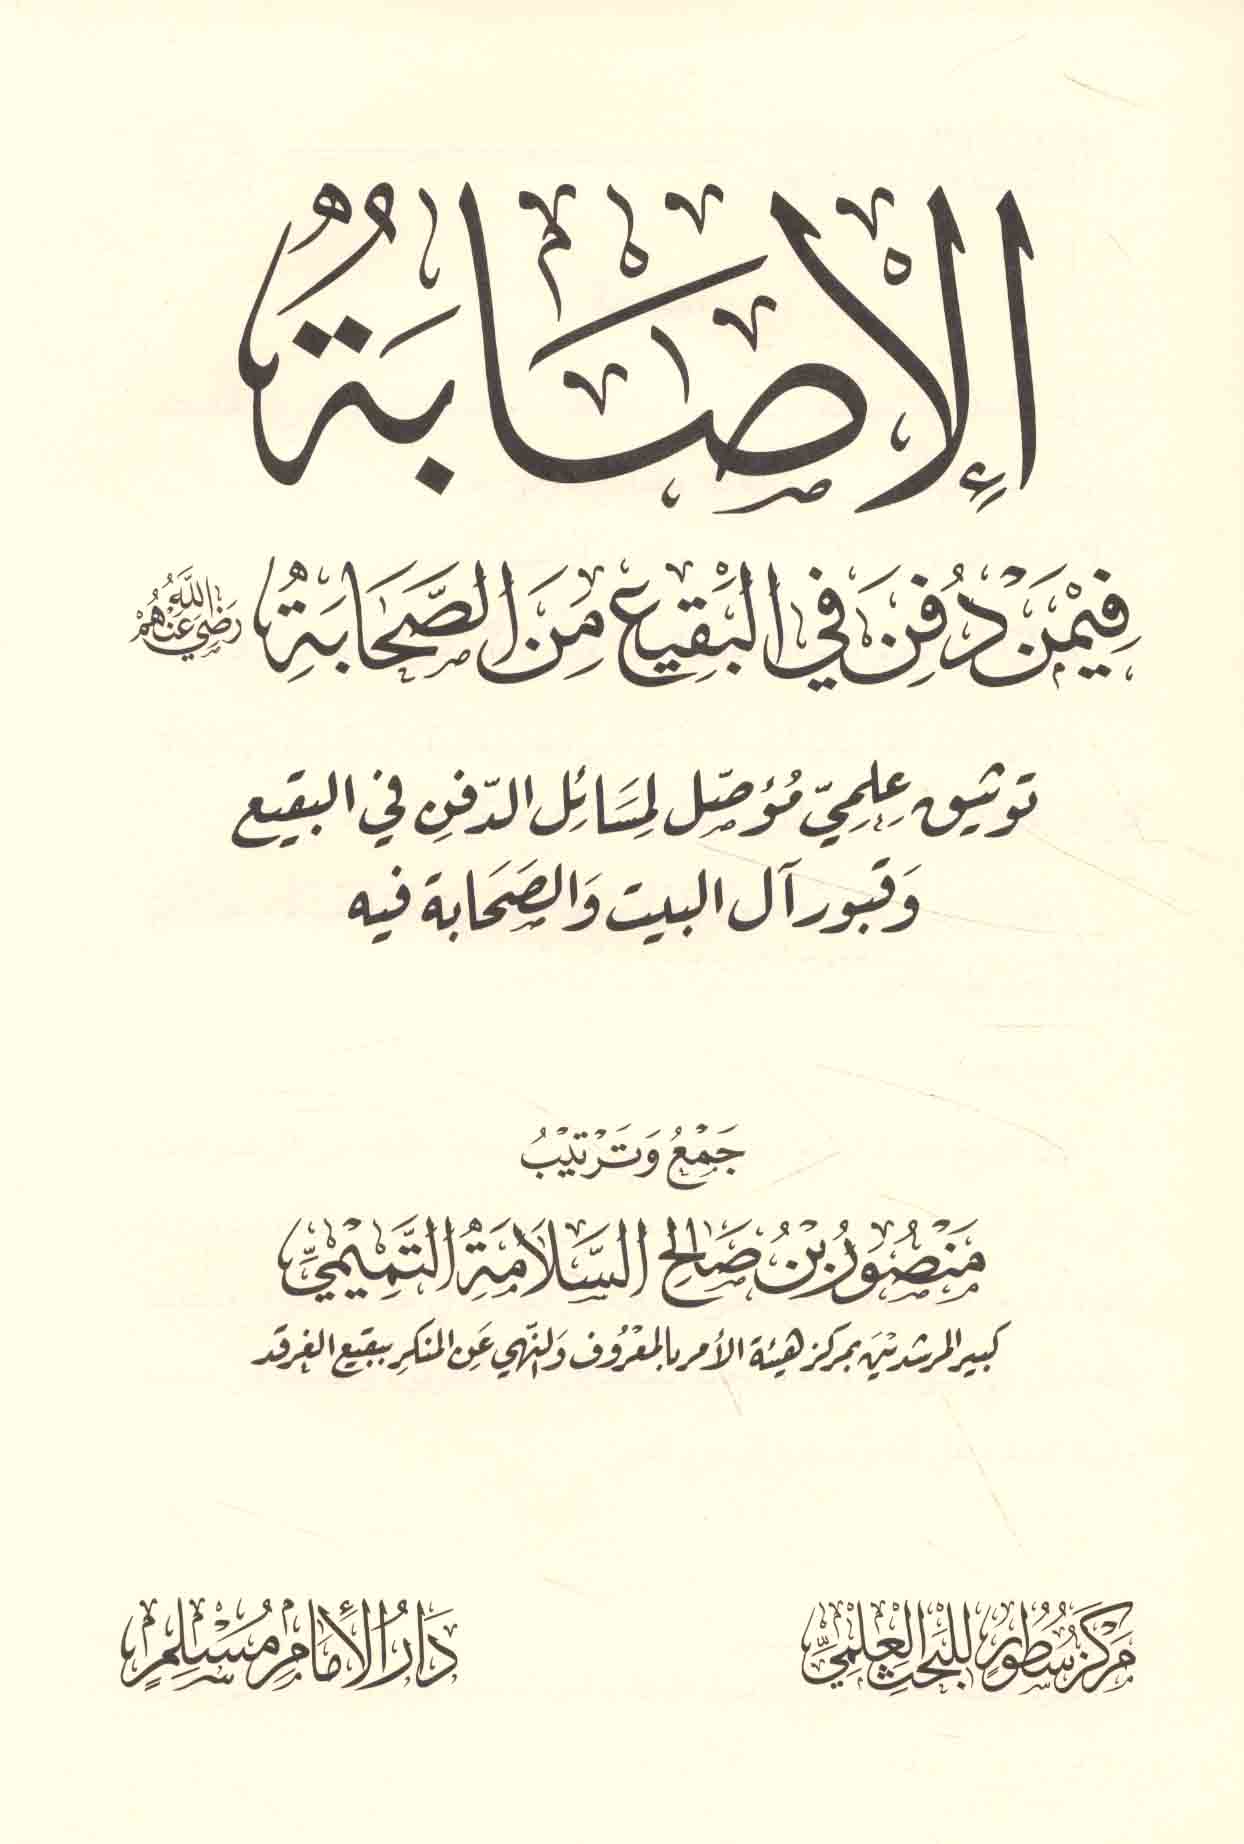 الإِصَابَةُ
فِيْمَنْ دُفِنَ فِي البَقِيْعِ مِنَ الصَّحَابَةِ رَضِيَ اللَّهُ عَنْهُمْ
توثيق عِلميّ مُؤصّل لمسَائل الدّفن في البقيع
وَقبور آل البيت وَالصَحَابة فيه
جَمْعُ وَتَرْتِيْبُ
مَنْصُورُ بْنُ صَالِح السَّلَامَةُ التَّمِيْمِيُّ
كبير المرشدين بمركز هيئة الأمر بالمعْرُوف وَالنّهي عَن المنكر ببقيع الغرقد
مَرْكَزُ سُطُورٍ للبَحْثِ العِلْمِيِّ
دَارُ الإِمَامِ مُسْلِمٍ